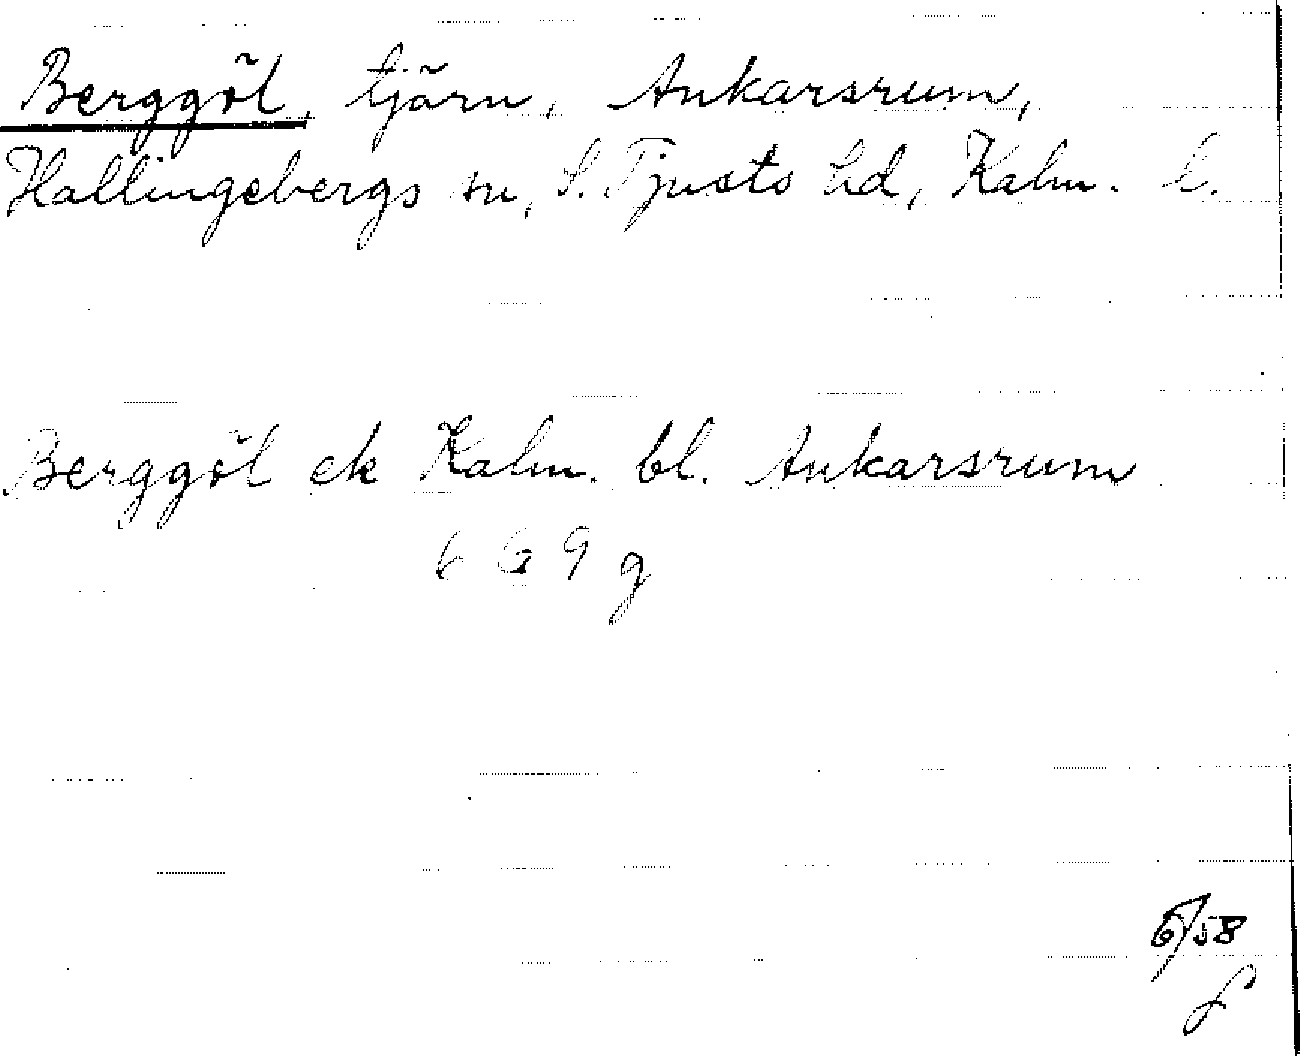 Berggöl, tjärn, Ankarsrum,
Hallingebergs sn, S. Tjusts hd, Kalm. l.
Berggöl ek Kalm. bl. Ankarsrum
6 G 9 g
6/58